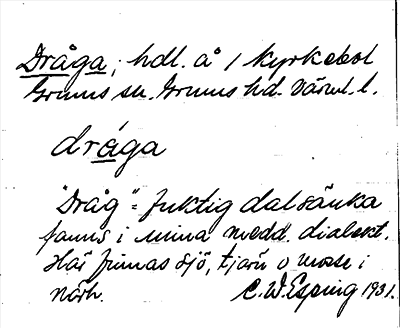 Dråga, hdl. å / Kyrkebol
Grums sn. Grums hd. Värml. l.
dråga
"Dråg" = fuktig dalsänka
fanns i mina medd. dialekt.
Här finnas sjö, tjärn o mosse i
närh. C.W. Esping 1931.